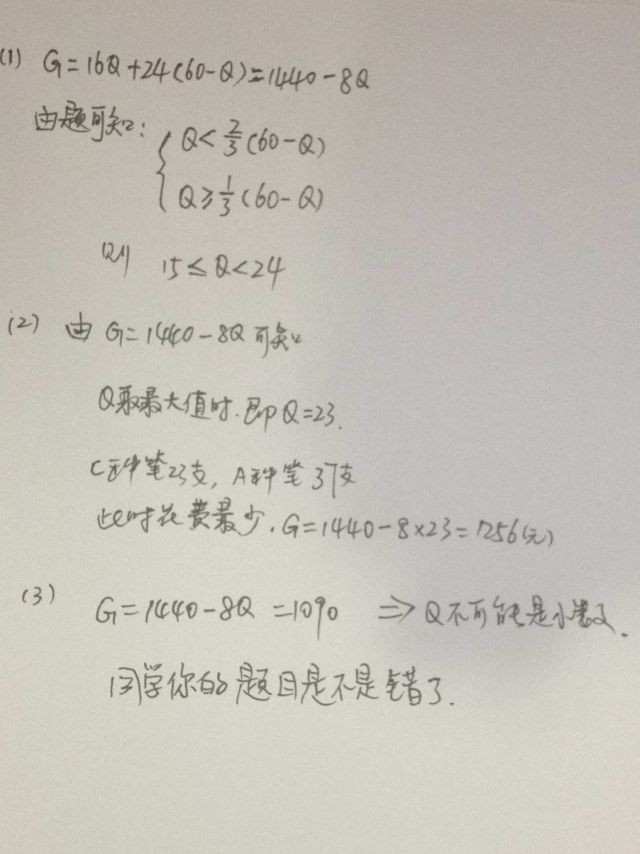 (1) G=16Q+24(60-Q)=1440-8Q
由题可知:
{ Q<2/3(60-Q)
Q≥1/3(60-Q)
则 15≤Q<24
(2) 由 G=1440-8Q 可知
Q取最大值时.即Q=23.
C种笔23支, A种笔37支
此时花费最少. G=1440-8×23=1256(元)
(3) G=1440-8Q=1090 ⇒ Q不可能是小数.
同学你的题目是不是错了.